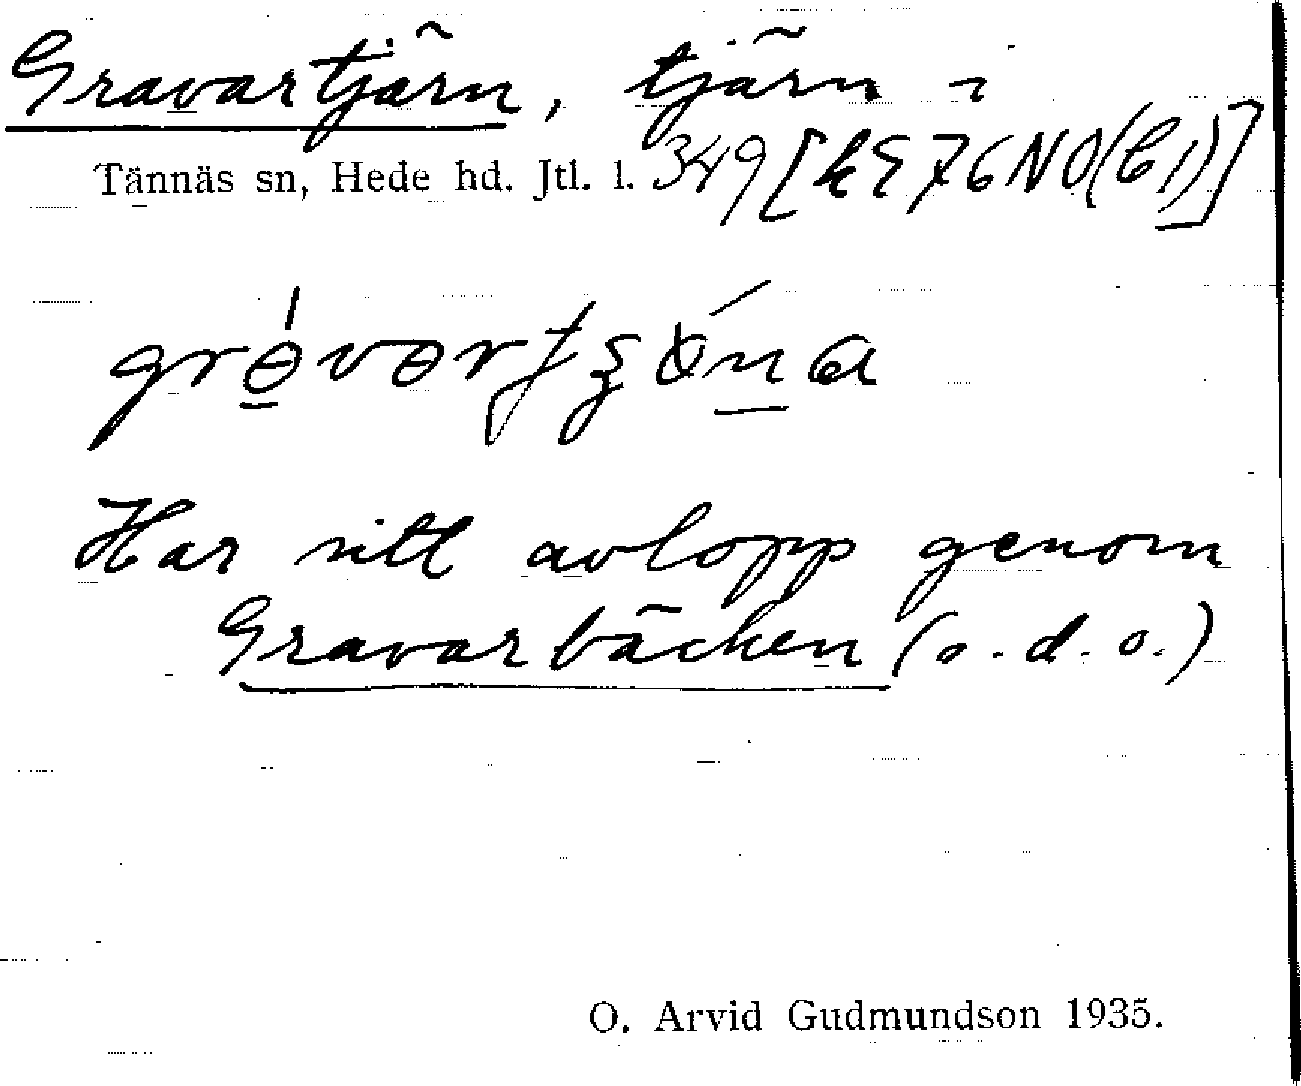 Gravartjärn, tjärn i
Tännäs sn, Hede hd. Jtl. l. 349 [k Ꞩ 76 NO (C1)]
Har sitt avlopp genom
Gravarbäcken (s.d.o.)
O. Arvid Gudmundson 1935.